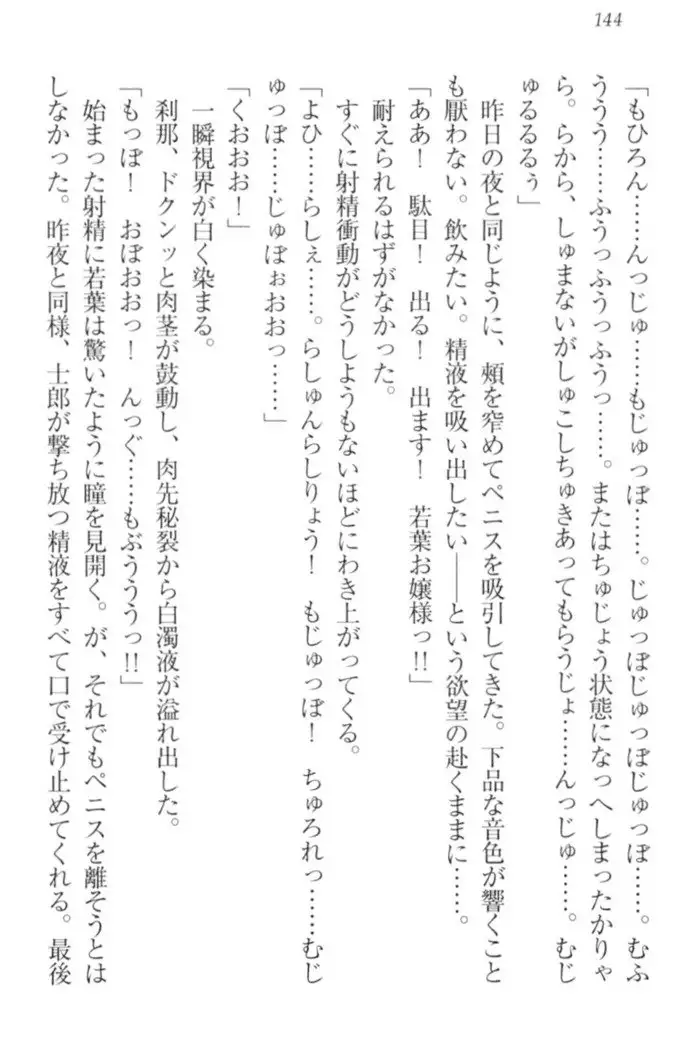 144
「もひろん……んっじゅ……もじゅっぽ……。じゅっぽじゅっぽじゅっぽ……。むふ
ううう……ふうっふうっふうっ……。またはちゅじょう状態になっへしまったかりゃ
ら。らから、しゅまないがしゅこしちゅきあってもらうじょ……んっじゅ……。むじ
ゅるるるぅ」
　昨日の夜と同じように、頰を窄めてペニスを吸引してきた。下品な音色が響くこと
も厭わない。飲みたい。精液を吸い出したい――という欲望の赴くままに……。
「ああ！　駄目！　出る！　出ます！　若葉お嬢様っ!!」
　耐えられるはずがなかった。
　すぐに射精衝動がどうしようもないほどにわき上がってくる。
「よひ……らしぇ……。らしゅんらしりょう！　もじゅっぽ！　ちゅろれっ……むじ
ゅっぽ……じゅぽぉおおっ……」
「くおおお！」
　一瞬視界が白く染まる。
　刹那、ドクンッと肉茎が鼓動し、肉先秘裂から白濁液が溢れ出した。
「もっぽ！　おぼおおっ！　んっぐ……もぶうううっ!!」
　始まった射精に若葉は驚いたように瞳を見開く。が、それでもペニスを離そうとは
しなかった。昨夜と同様、士郎が撃ち放つ精液をすべて口で受け止めてくれる。最後